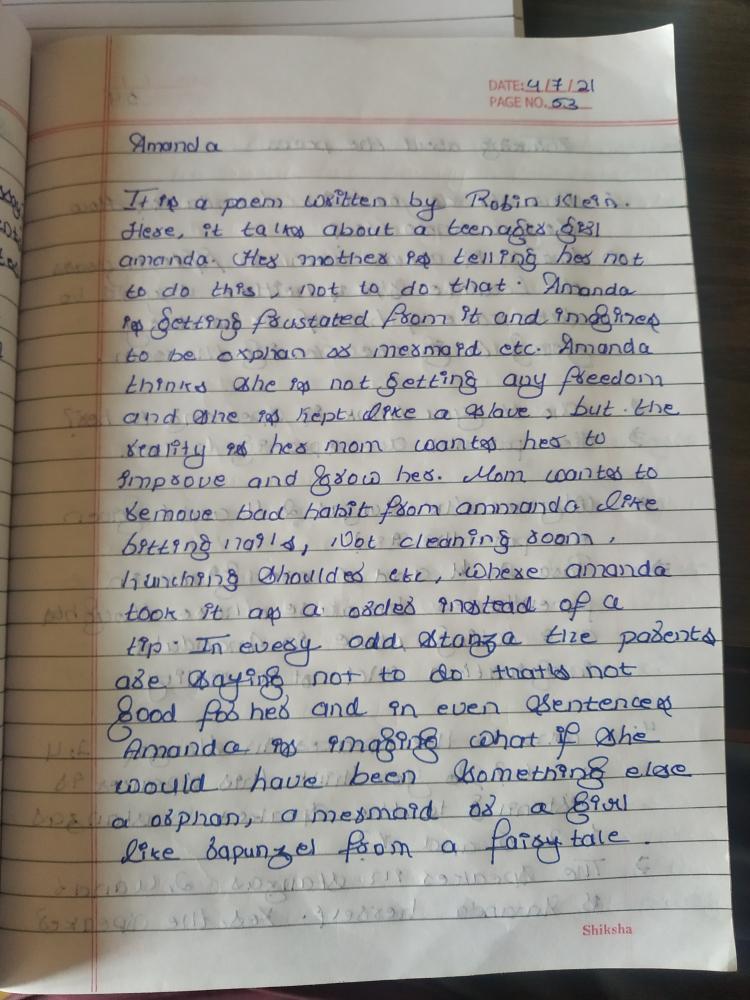 DATE: 4/7/21
PAGE NO. 53
Amanda
It is a poem written by Robin Klein.
Here, it talks about a teenager girl
amanda. Her mother is telling her not
to do this, not to do that. Amanda
is getting frustated from it and imagines
to be orphan or mermaid etc. Amanda
thinks she is not getting any freedom
and she is kept like a slave, but the
reality is her mom wants her to
improve and grow her. Mom wants to
remove bad habit from ammanda like
bitting nails, Not cleaning room,
hunching shoulder etc, where amanda
took it as a order instead of a
tip. In every odd stanza the parents
are saying not to do thats not
good for her and in even sentences
Amanda is imaging what if she
would have been something else
a orphan, a mermaid or a girl
like rapunzel from a fairy tale.
Shiksha